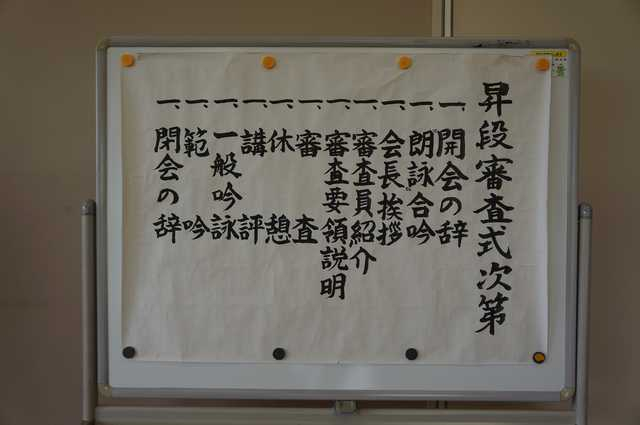 昇段審査式次第
一、開会の辞
一、朗詠合吟
一、会長挨拶
一、審査員紹介
一、審査要領説明
一、審査
一、休憩
一、講評
一、一般吟詠
一、範吟
一、閉会の辞